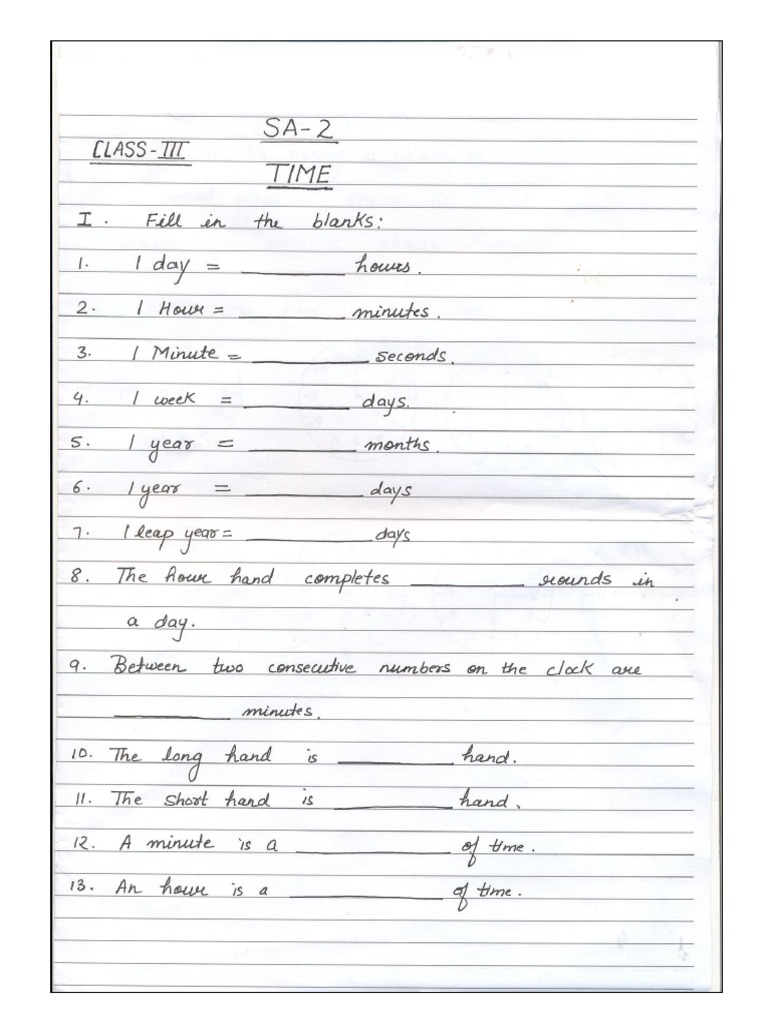 SA-2
CLASS-III
TIME
I. Fill in the blanks:
1. 1 day = ________ hours.
2. 1 Hour = ________ minutes.
3. 1 Minute = ________ seconds.
4. 1 week = ________ days.
5. 1 year = ________ months.
6. 1 year = ________ days
7. 1 leap year = ________ days
8. The hour hand completes ________ rounds in
a day.
9. Between two consecutive numbers on the clock are
________ minutes.
10. The long hand is ________ hand.
11. The short hand is ________ hand.
12. A minute is a ________ of time.
13. An hour is a ________ of time.